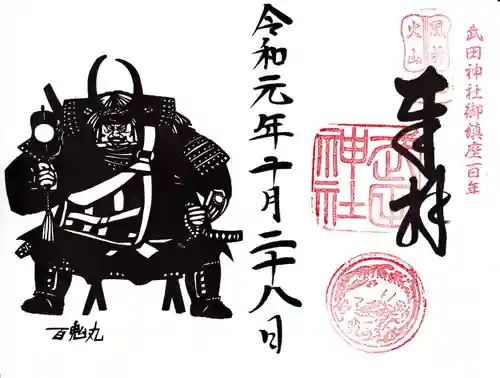 武田神社御鎮座百年
風林
火山
奉拝
武田神社
令和元年十月二十八日
百鬼丸